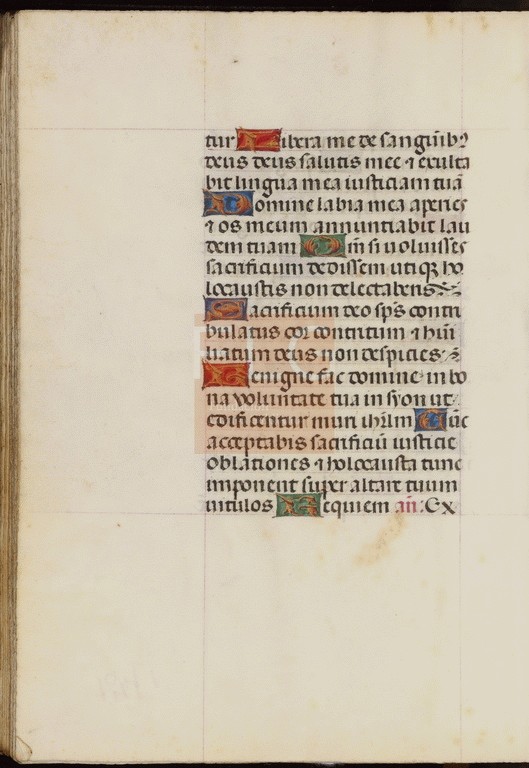 tur Libera me de sanguibꝰ
deus deus salutis mee ⁊ exulta
bit lingua mea iusticiam tuā
Domine labia mea aperies
⁊ os meum annuntiabit lau
dem tuam Qm̄ si uoluisses
sacrificium dedissem utiqꝫ ho
locaustis non delectaberis
Sacrificium deo sp̄s contri
bulatus cor contritum ⁊ humi
liatum deus non despicies
Benigne fac domine in bo
na voluntate tua in syon ut
edificentur muri ihr̄lm Tūc
acceptabis sacrificiū iusticie
oblationes ⁊ holocausta tunc
imponent super altare tuum
uitulos Requiem an̄: Ex